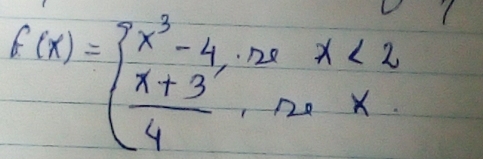 f(x) = { x³ - 4, se x < 2
x + 3
4 , se x.